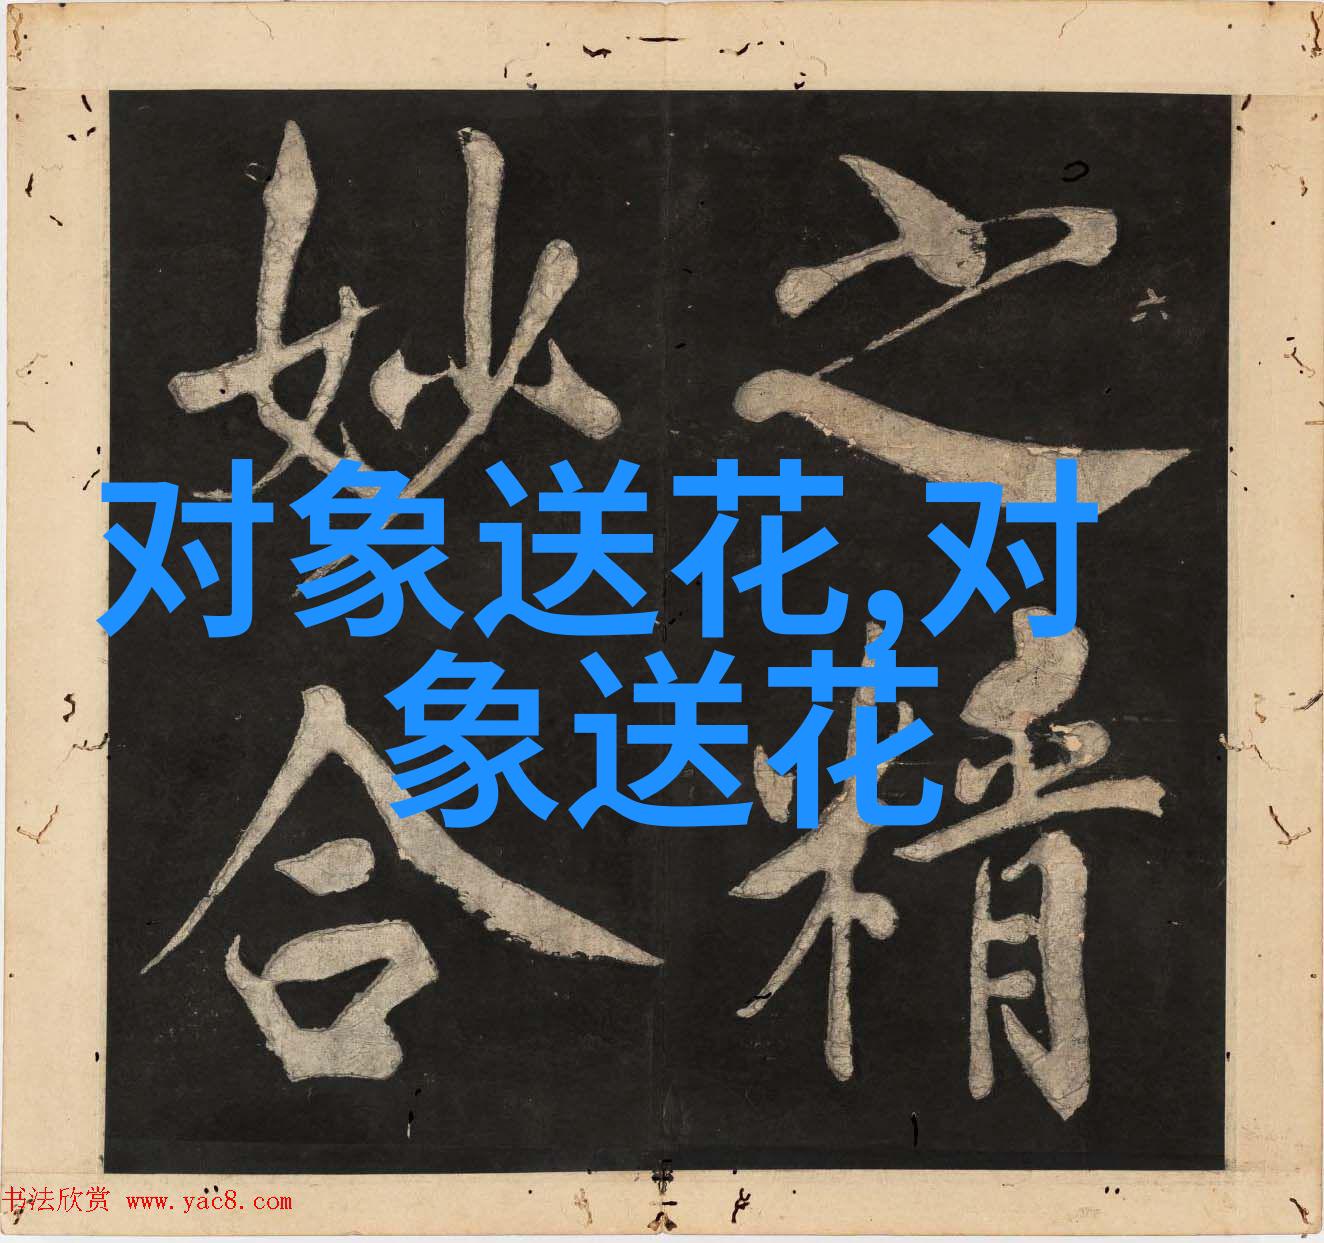 之精
妙合
六
对象送花,对
象送花
书法欣赏 www.yac8.com